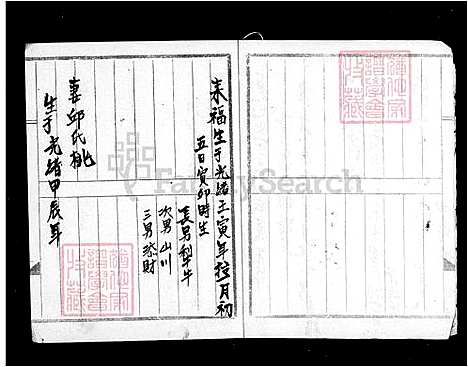 来福生于光緒壬寅年拾月初
五日寅卯時生
長男犁牛
次男山川
三男添財
妻邱氏桃
生于光緒甲辰年
FamilySearch